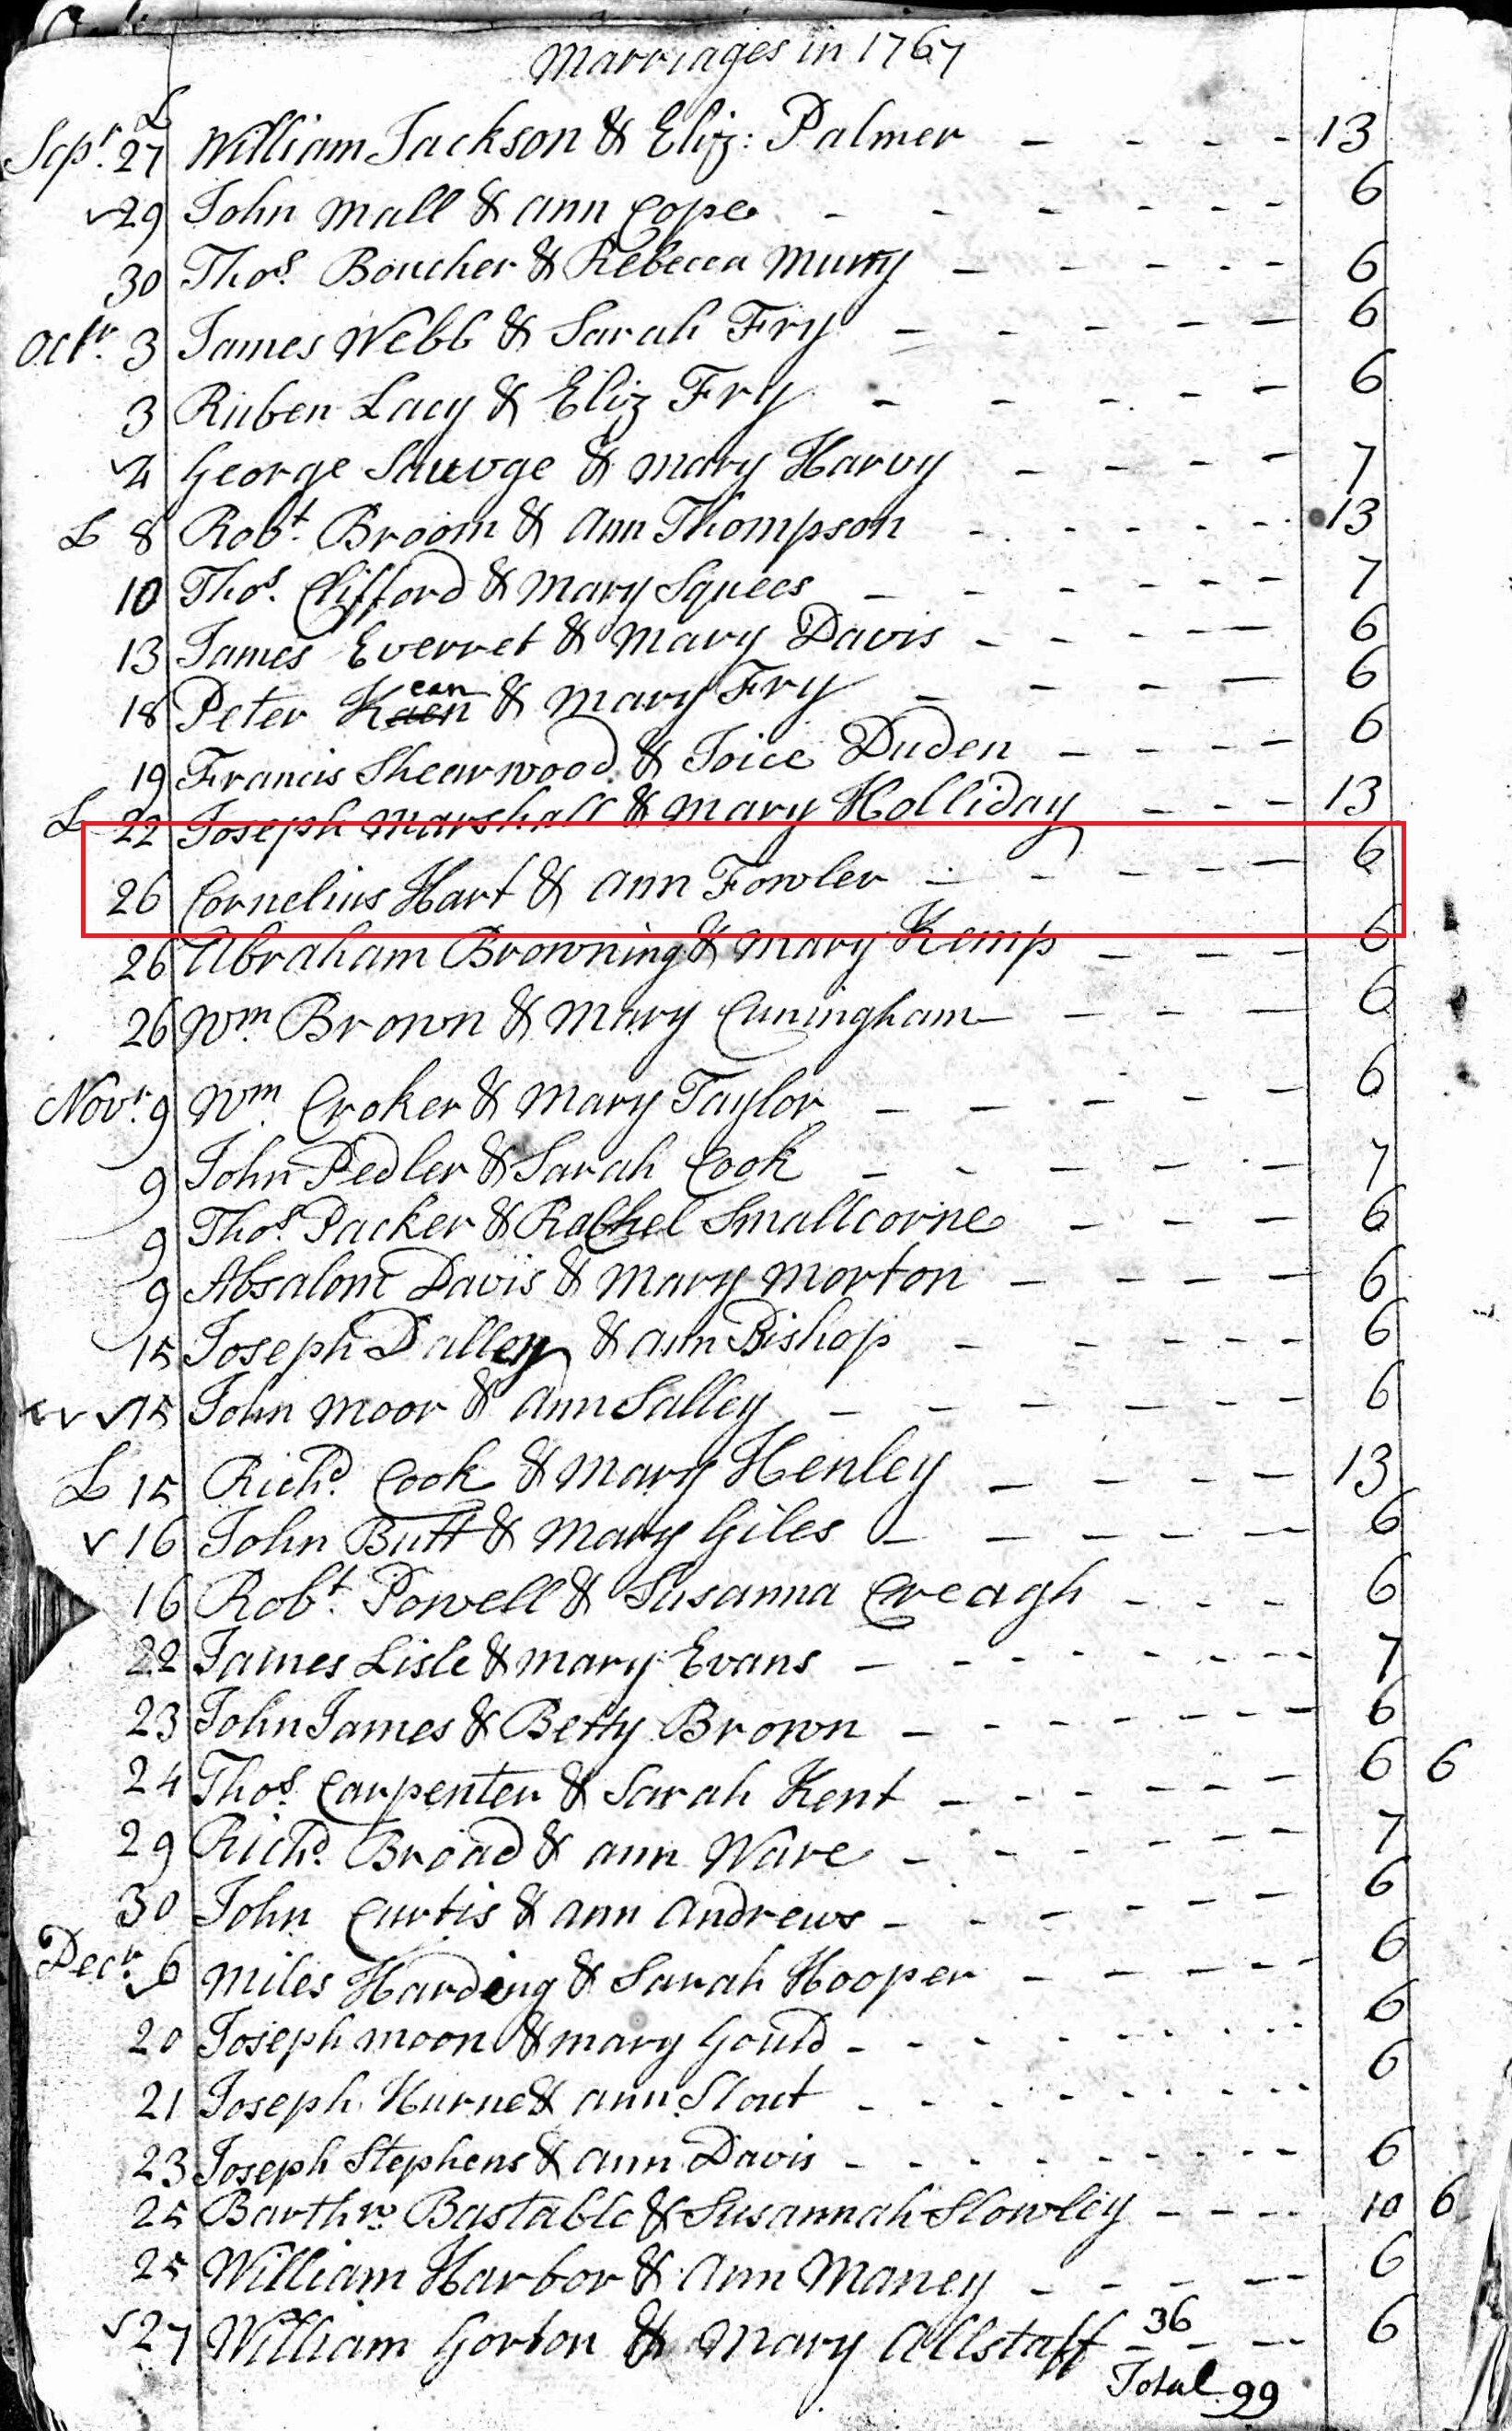 Marriages in 1767
L
Sepr. 27 William Jackson & Eliz: Palmer - - - - 13
✓29 John Mall & Ann Cope - - - - - - 6
30 Thos. Boucher & Rebecca Murry - - - - - 6
Octr. 3 James Webb & Sarah Fry - - - - - 6
3 Ruben Lacy & Eliz Fry - - - - - 6
✓4 George Sauvge & Mary Harvy - - - - 7
L 8 Robt. Broom & Ann Thompson - - - - - 13
10 Thos. Clifford & Mary Squees - - - - - 7
13 James Everret & Mary Davis - - - - - 6
18 Peter Kaen ean & Mary Fry - - - - 6
19 Francis Shearwood & Joice Duden - - - - 6
L 22 Joseph Marshall & Mary Holliday - - - 13
26 Cornelius Hart & Ann Fowler - - - - - 6
26 Abraham Browning & Mary Kemp - - - 6
26 Wm. Brown & Mary Cuningham - - - 6
Novr. 9 Wm. Croker & Mary Taylor - - - - - 6
9 John Pedler & Sarah Cook - - - - - 7
9 Thos. Packer & Rachel Smallcorne - - - 6
9 Absalom Davis & Mary Morton - - - - 6
15 Joseph Dalley & Ann Bishop - - - - - 6
✓ ✓15 John Moor & Ann Salley - - - - - - 6
L 15 Richd. Cook & Mary Henley - - - - 13
✓ 16 John Butt & Mary Giles - - - - - - 6
16 Robt. Powell & Susanna Creagh - - - 6
22 James Lisle & Mary Evans - - - - - - - 7
23 John James & Betty Brown - - - - - - - 6
24 Thos. Carpenter & Sarah Kent - - - - - - 6 6
29 Richd. Broad & Ann Ware - - - - - - 7
30 John Curtis & Ann Andrews - - - - - - 6
Decr. ✓6 Miles Harding & Sarah Hooper - - - - - 6
20 Joseph Moon & Mary Gould - - - - - - - - 6
21 Joseph Hurne & Ann Slout - - - - - - - - 6
23 Joseph Stephens & Ann Davis - - - - - - - - 6
25 Barthw. Bastable & Susannah Slowley - - - - 10 6
25 William Harbor & Ann Maney - - - - - 6
✓27 William Gorton & Mary Allstaff 36 - - - 6
Total 99